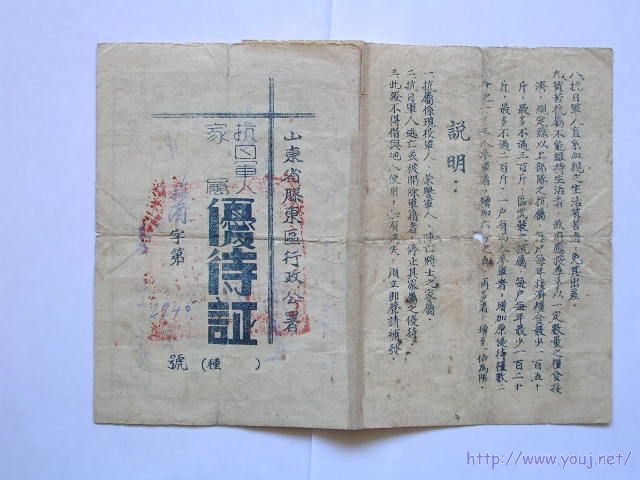 八、抗日軍人直系血親之生活窮苦者、免其出差。
九、貧苦抗屬不能維持生活者、政府應按季予以一定數量之糧食救
濟、規定錄以上部隊之抗屬、每戶每年接濟糧食最少一百五十
斤、最多不過三百斤、區武裝之抗屬、每戶每年最少一百二十
斤、最多不過二百斤、一戶有兩人參軍者、增加原優待糧數二
說明：
一、抗屬係現役軍人、榮譽軍人、陣亡將士之家屬。
二、抗日軍人逃亡或被開除軍籍者、停止其家屬之優待。
三、此證不得借與他人使用、如有遺失、須立即聲請補發。
山東省膠東區行政公署
抗日軍人
家屬
優待証
字第
號
(種 )
http://www.youj.net/